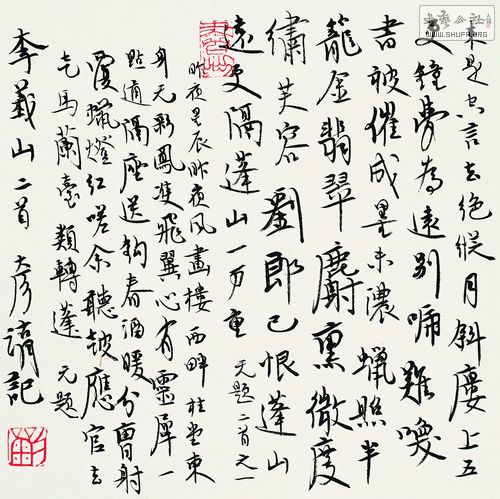 来是空言去絕縱月斜樓上五
更鐘夢為遠別啼難喚
書被催成墨未濃蠟照半
籠金翡翠麝熏微度
繡芙容劉郎已恨蓬山
遠更隔蓬山一万重 无題二首之一
昨夜星辰昨夜风畫樓西畔桂堂東
身无彩鳳雙飛翼心有靈犀一
點通隔座送鉤春酒暖分曹射
覆蠟燈紅嗟余聽鼓應官去
走馬蘭臺類轉蓬 无題
李義山二首 記
WWW.SHUFA.ORG